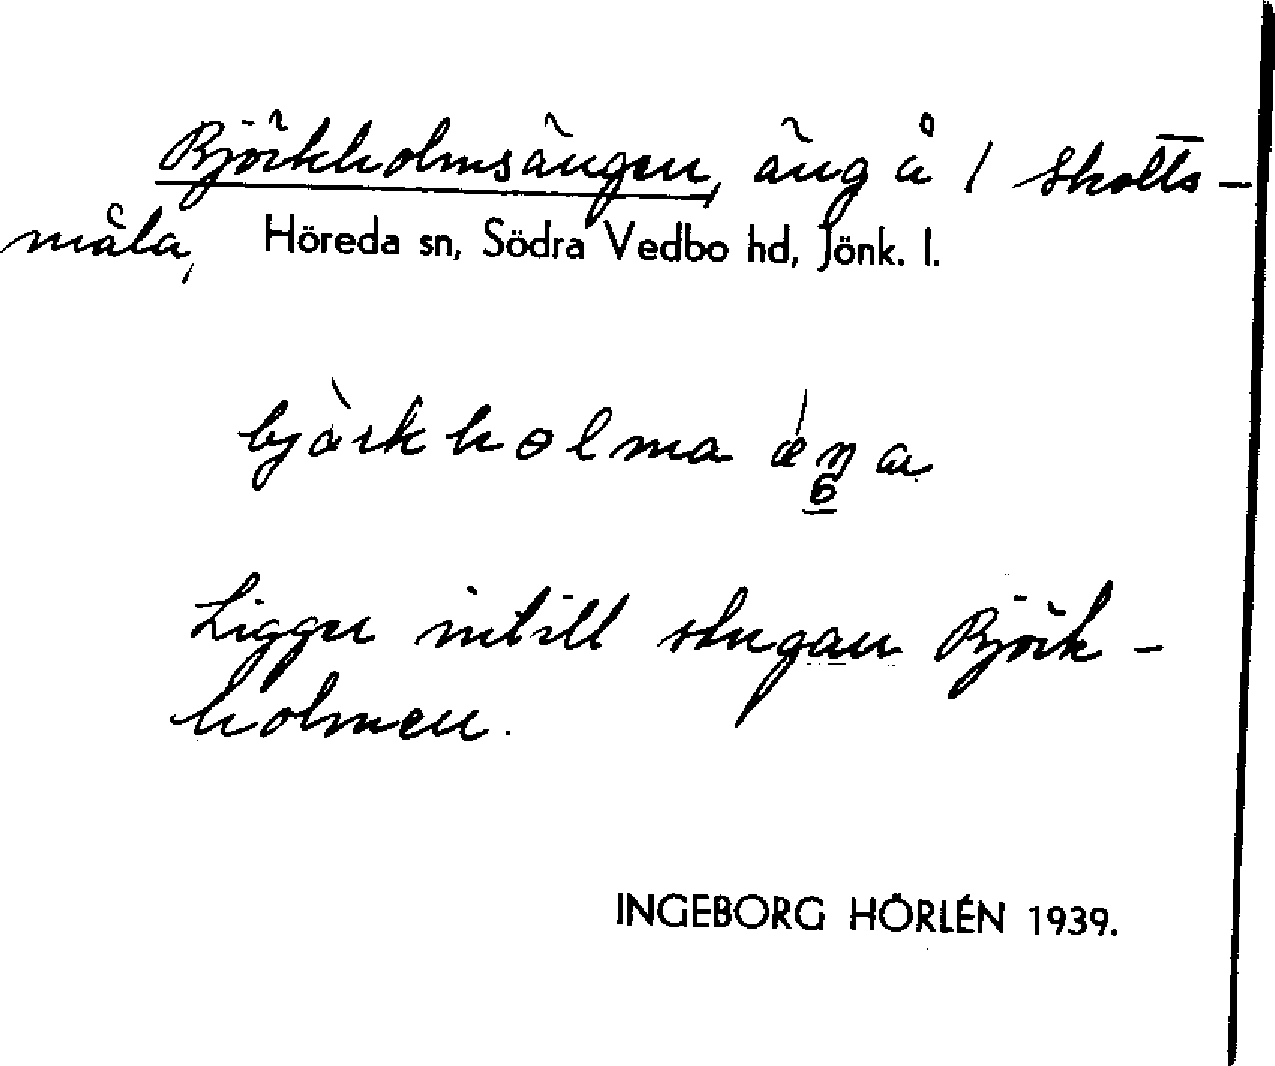 Björkholmsängen, äng å 1 Skotts-
måla, Höreda sn, Södra Vedbo hd, Jönk. l.
bjàrkholma ǽŋa
6
Ligger intill stugan Björk-
holmen.
INGEBORG HÖRLÉN 1939.